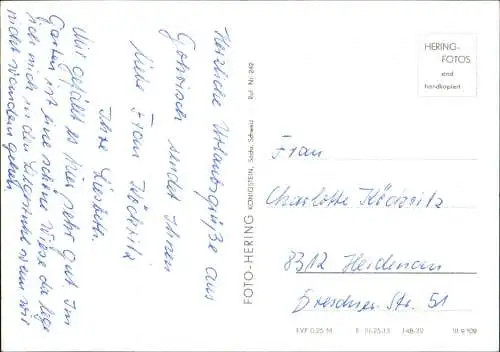 Herzliche Urlaubsgrüße aus
Gohrisch sendet Ihnen
liebe Frau Köckritz
Ihre Liesbeth.
Mir gefällt es hier sehr gut. Im
Garten ist eine schöne Wiese da lege
ich mich in den Liegestuhl wenn wir
nicht wandern gehen.
FOTO-HERING KÖNIGSTEIN, Sächs. Schweiz Ruf: Nr. 242
HERING-
FOTOS
sind
handkopiert
Frau
Charlotte Köckritz
8312 Heidenau
Dresdner Str. 51
EVP 0,25 M
III 9 109